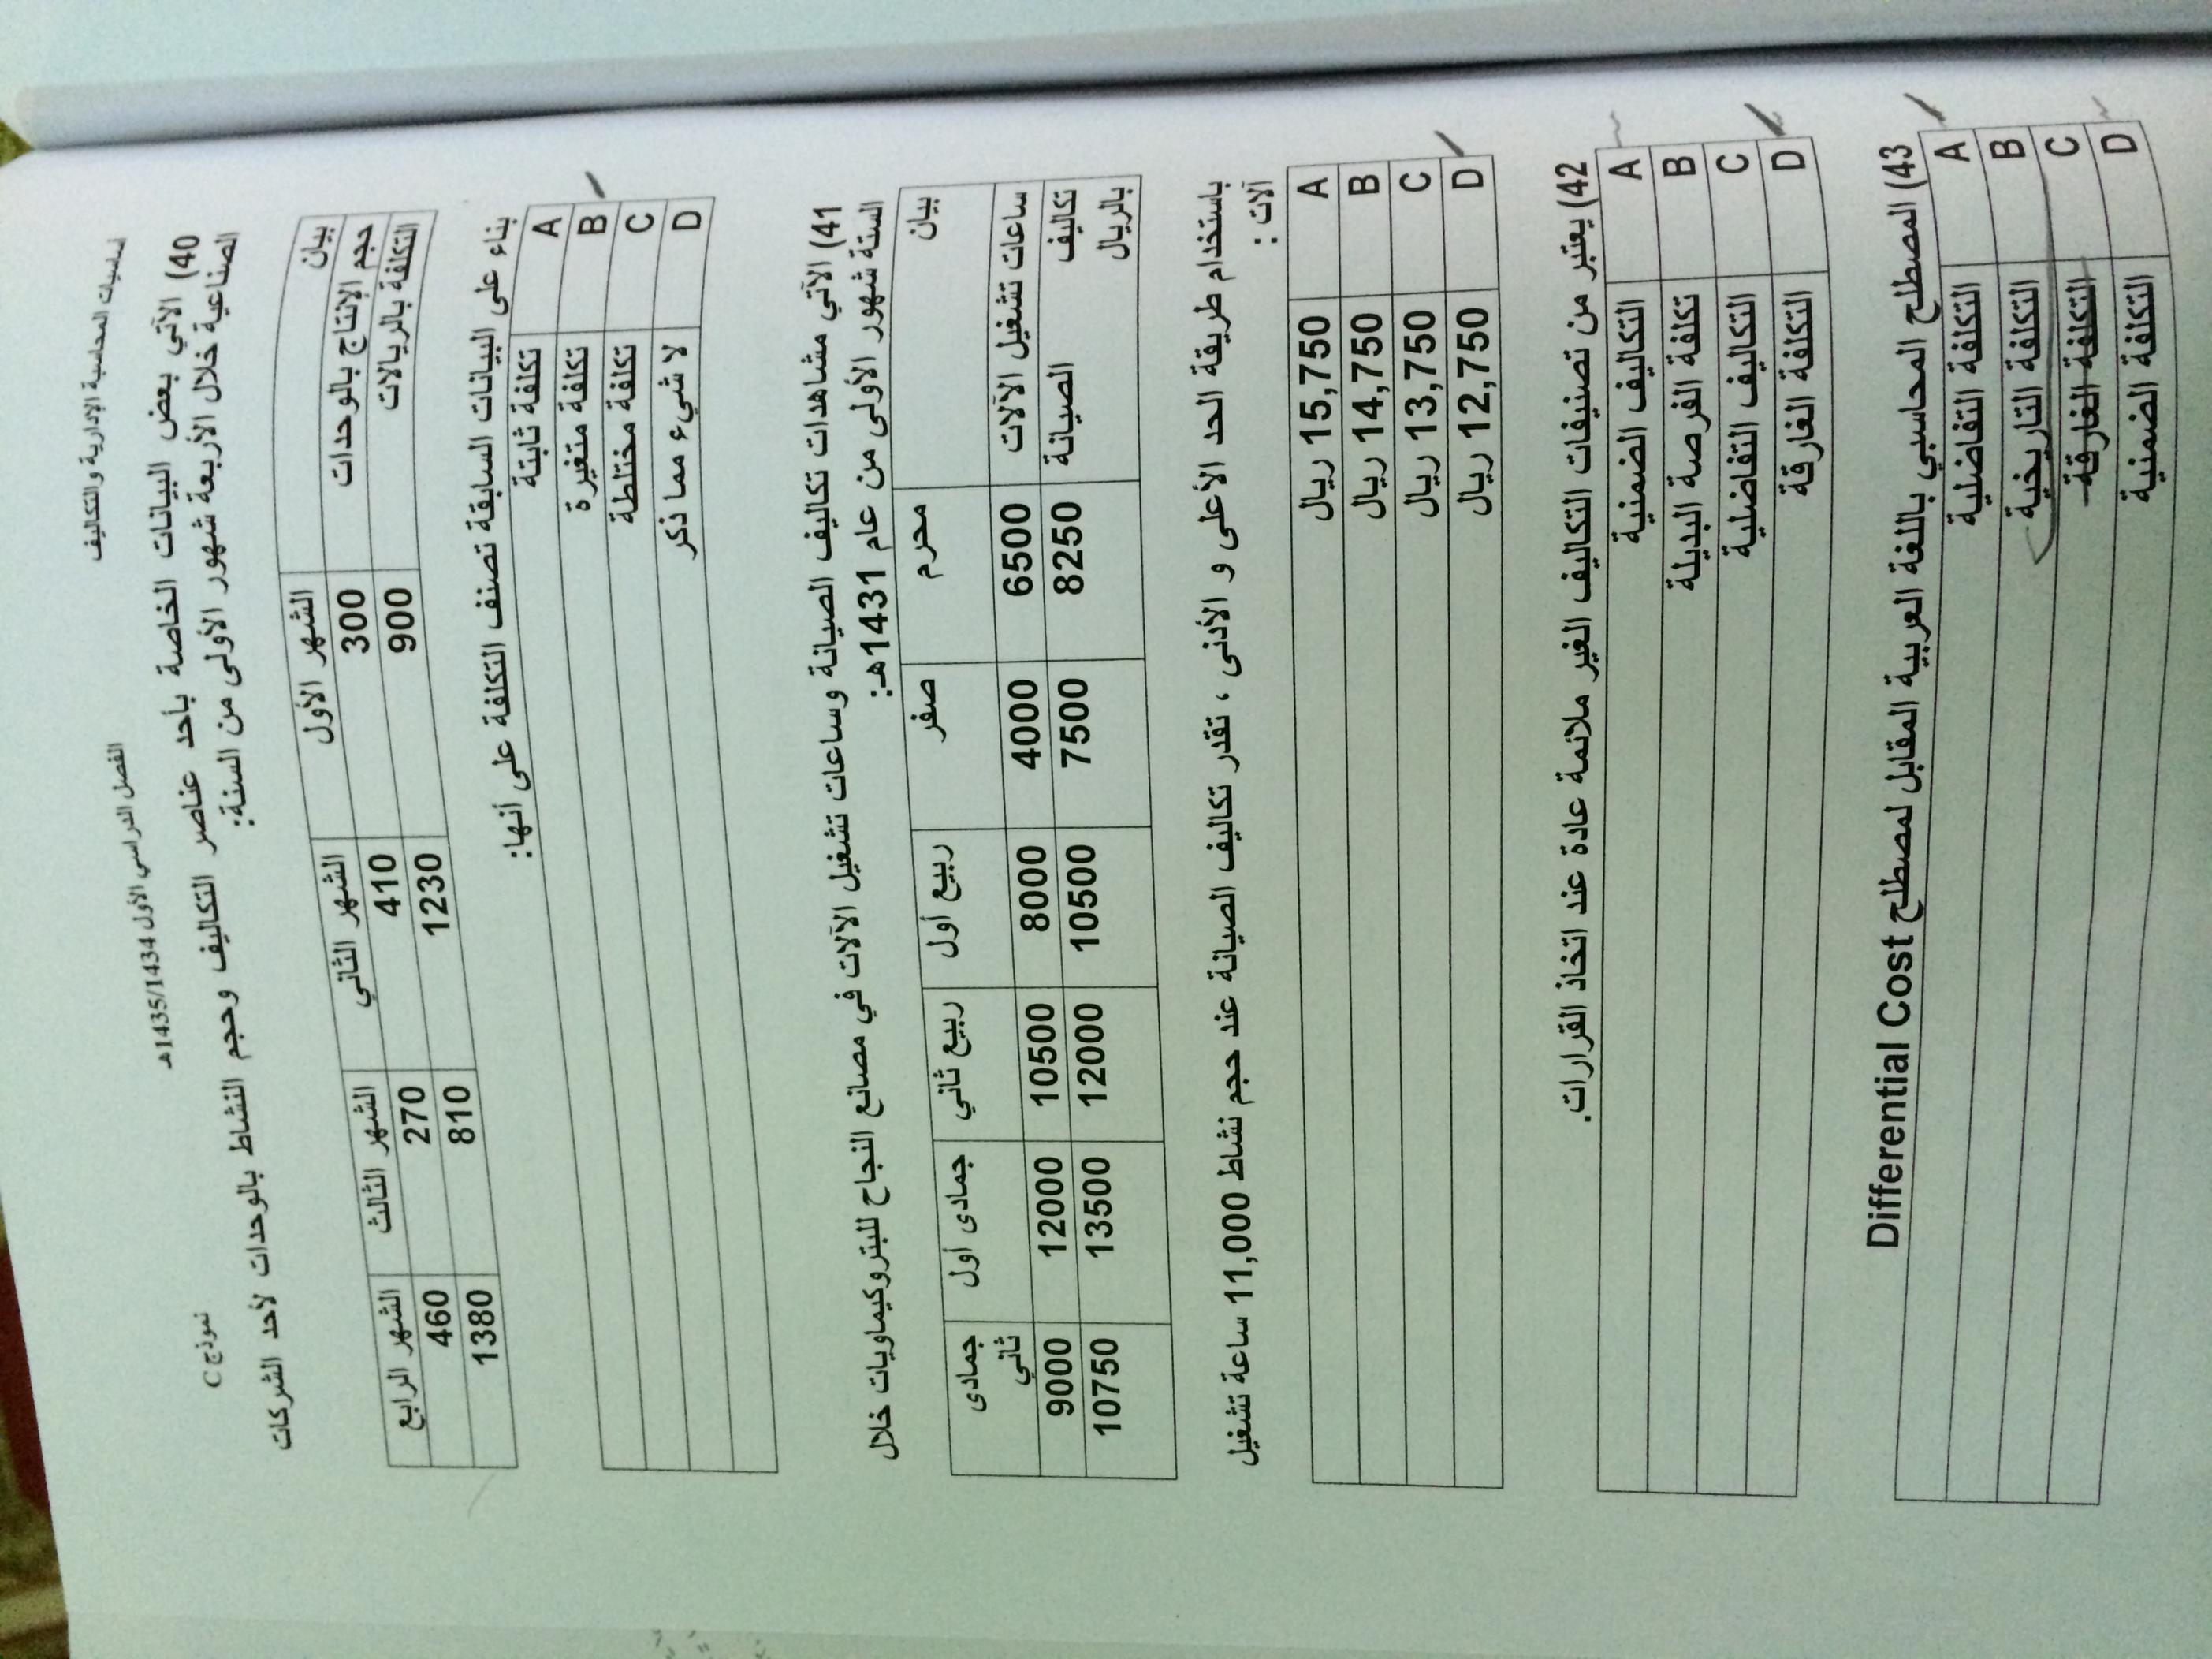 أساسيات المحاسبة الإدارية والتكاليف الفصل الدراسي الأول 1435/1434هـ نموذج C
40) الآتي بعض البيانات الخاصة بأحد عناصر التكاليف وحجم النشاط بالوحدات لأحد الشركات
الصناعية خلال الأربعة شهور الأولى من السنة:
بيان الشهر الأول الشهر الثاني الشهر الثالث الشهر الرابع
حجم الإنتاج بالوحدات 300 410 270 460
التكلفة بالريالات 900 1230 810 1380
بناء على البيانات السابقة تصنف التكلفة على أنها:
A تكلفة ثابتة
B تكلفة متغيرة
C تكلفة مختلطة
D لا شيء مما ذكر
41) الآتي مشاهدات تكاليف الصيانة وساعات تشغيل الآلات في مصانع النجاح للبتروكيماويات خلال
الستة شهور الأولى من عام 1431هـ:
بيان محرم صفر ربيع أول ربيع ثاني جمادى أول جمادى
ثاني
ساعات تشغيل الآلات 6500 4000 8000 10500 12000 9000
تكاليف الصيانة 8250 7500 10500 12000 13500 10750
بالريال
باستخدام طريقة الحد الأعلى و الأدنى ، تقدر تكاليف الصيانة عند حجم نشاط 11,000 ساعة تشغيل
آلات :
A 15,750 ريال
B 14,750 ريال
C 13,750 ريال
D 12,750 ريال
42) يعتبر من تصنيفات التكاليف الغير ملائمة عادة عند اتخاذ القرارات.
A التكاليف الضمنية
B تكلفة الفرصة البديلة
C التكاليف التفاضلية
D التكلفة الغارقة
43) المصطلح المحاسبي باللغة العربية المقابل لمصطلح Differential Cost
A التكلفة التفاضلية
B التكلفة التاريخية
C التكلفة الغارقة
D التكلفة الضمنية